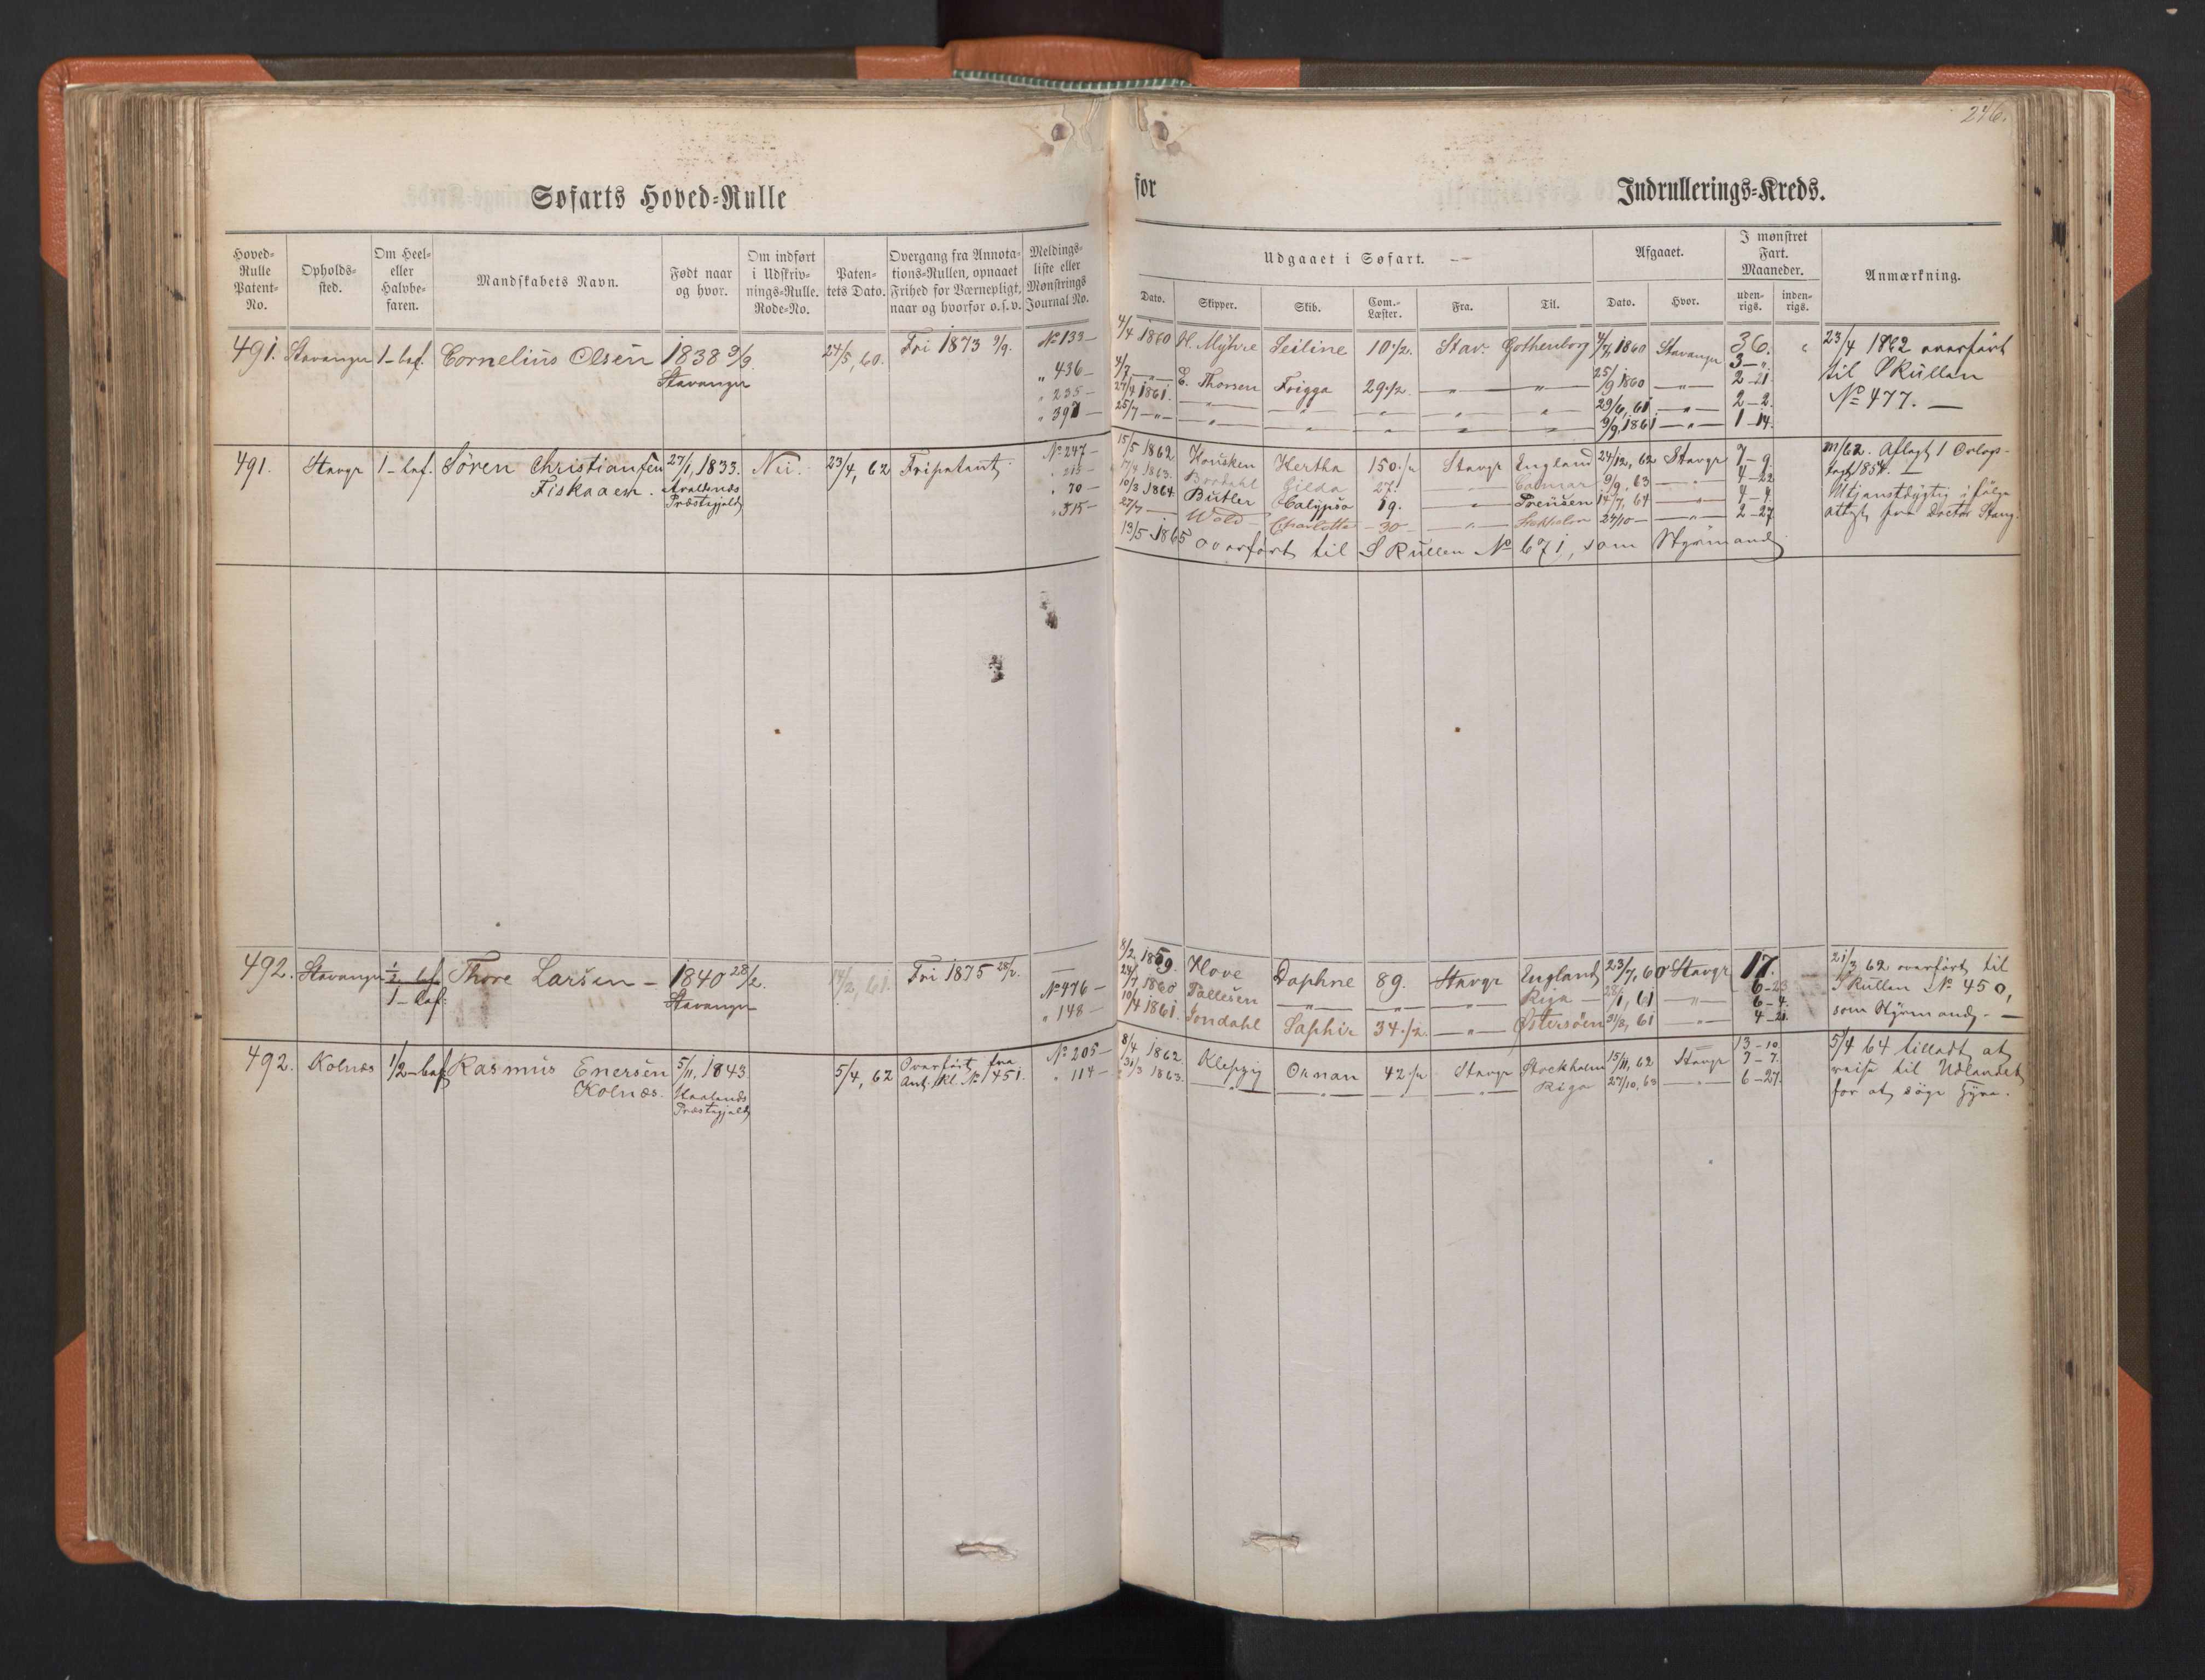 246.
Søfarts Hoved-Rulle for Indrullerings-Kreds.
Hoved-Rulle Patent-No.
Opholds-sted.
Om Heel- eller Halvbe-faren.
Mandskabets Navn.
Født naar og hvor.
Om indført i Udskriv-nings-Rulle. Rode-No.
Paten-tets Dato.
Overgang fra Annota-tions-Rullen, opnaaet Frihed for Værnepligt, naar og hvorfor o.s.v.
Meldings-liste eller Mønstrings Journal No.
Udgaaet i Søfart.
Dato. Skipper. Skib. Com.-Læster. Fra. Til.
Afgaaet.
Dato. Hvor.
I mønstret Fart. Maaneder.
uden-rigs. inden-rigs.
Anmærkning.
491. Stavanger 1-bef. Cornelius Olsen 1838 9/9 24/5, 60. Fri 1873 9/9. No 133 – 4/4 1860 H. Myhre Seiline 10 1/2. Stav. Gothenborg 4/7, 1860 Stavanger 36. 23/4 1862 overført
Stavanger „ 436 – E. Thorsen Frigga 29 1/2. – „ – „ 25/9 1860 – „ – 3 – „. til S Rullen
„ 235 – 27/4 1861. – „ – 29/6, 61 – „ – 2 – 21 No 477. –
„ 397 – 25/7 – „ – 9/9, 1861 – „ – 2 – 2.
1 – 14.
491. Stavgr 1-bef. Sören Christiansen 27/1, 1833. Nei. 23/4, 62 Fripatent No 247 – 15/5 1862. Housken Hertha 150 Stavgr England 24/12, 62 Stavgr 7 – 9. Aflagt 1 Orlogs-
Fiskaaen. Præstegjeld 17/4 1863. Gilda 27. 9/9, 63 – „ – 4 – 22 togt 1854. –
„ 70 – 10/3 1864. Butler Calypso 19. Preüsen 14/7, 64 4 – 4. Utjenstdygtig ifølge
„ 515 – 27/7 – Wold Charlotte – 30 – 24/10 – 2 – 27 attest fra Doctor Stang
13/5 1865 overført til S Rullen No 671, som Styrmand
492. Stavanger 1/2 bef. Thore Larsen – 1840 28/2. 14/2, 61. Fri 1875 28/2. – 8/2 1859. Hove Daphne 89. Stavgr England 23/7, 60 Stavgr 17. 21/3 62 overført til
1-bef. Stavanger No 476 – 24/7 1860 Tallesen – „ – Riga – 28/1, 61 – „ – 6 – 23 S Rullen No 450,
„ 148 – 10/4 1861. Jondahl Saphir 34 1/2 – „ – Østersøen 31/8, 61 – „ – 6 – 4. som Styrmand. –
4 – 21.
492. Kolnæs 1/2-bef Rasmus Enersen 5/11, 1843 5/4, 62 Overført fra No 205 – 8/4 1862 Kleppig Ornan 42 Stavgr Stockholm 15/11, 62 Stavgr 13 – 10. 5/4 64 tilladt at
Kolnæs. Haalands Ant. Rl. No 1451. „ 114 – 31/3 1863. – „ – Riga 27/10, 63 – „ – 7 – 7. reise til Udlandet
Præstegjeld 6 – 27. for at søge Hyre.